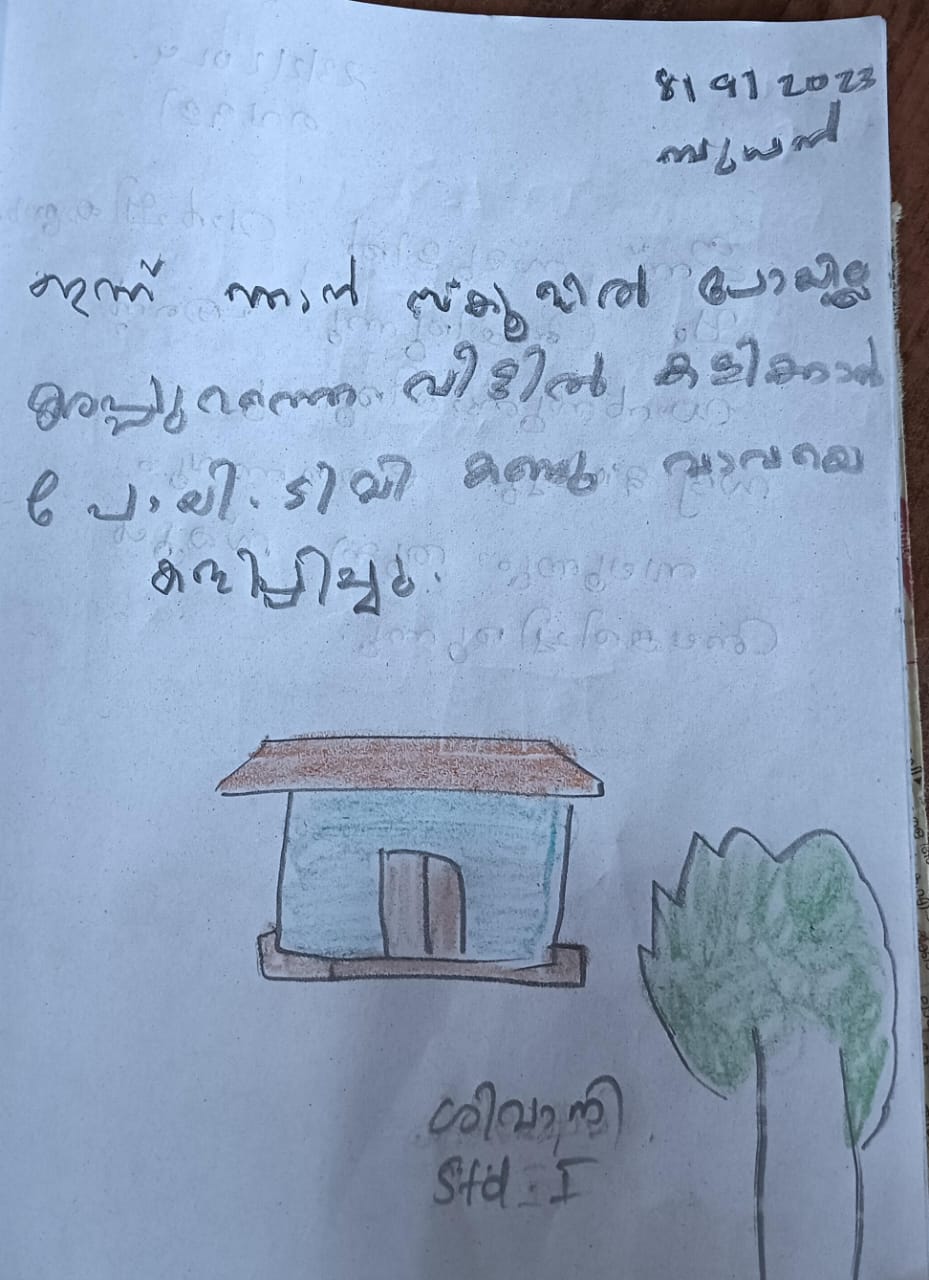 8/9/2023
ബുധൻ
ഇന്ന് ഞാൻ സ്കൂളിൽ പോയില്ല
അപ്പുറത്തെ വീട്ടിൽ കളിക്കാൻ
പോയി. ടിവി കണ്ടു വാവയെ
കളിപ്പിച്ചു.
ശിവാനി
Std - I